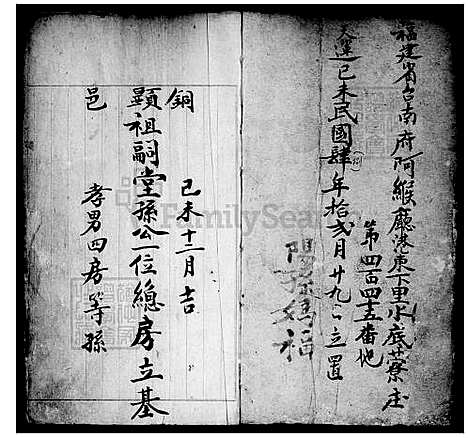 福建省台南府阿緱廳港東下里水底藔庄
第四百四十五番地
天運己未民國肆年拾弍月廿九日立置
陽孫媽福
己未十二月吉
銅
顯祖嗣堂孫公一位總房立基
邑
孝男四房等孫
FamilySearch